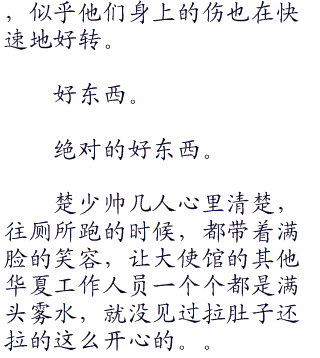 ，似乎他们身上的伤也在快
速地好转。
好东西。
绝对的好东西。
楚少帅几人心里清楚，
往厕所跑的时候，都带着满
脸的笑容，让大使馆的其他
华夏工作人员一个个都是满
头雾水，就没见过拉肚子还
拉的这么开心的。。